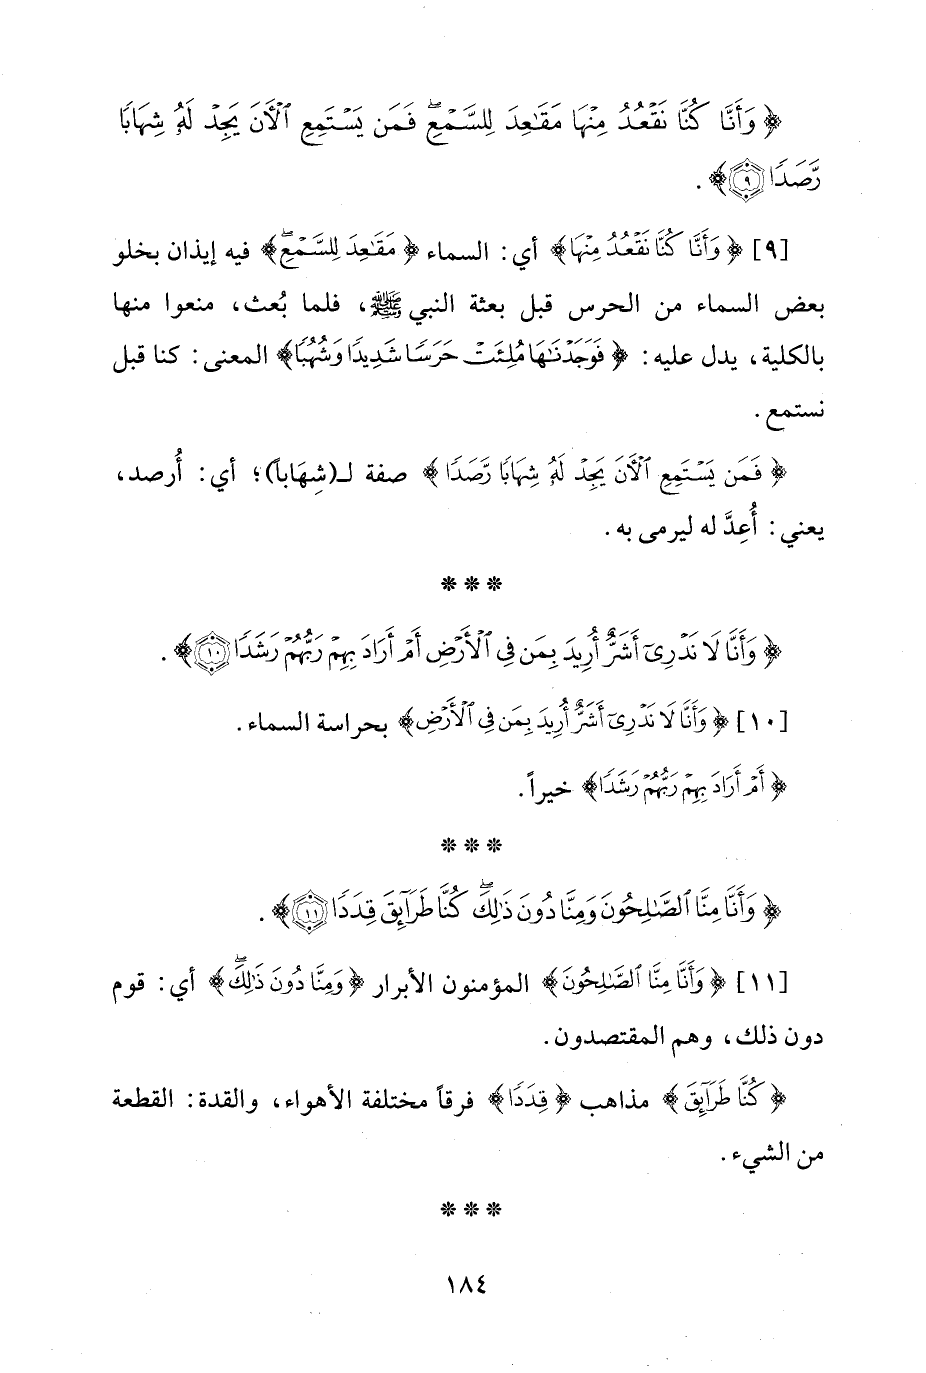 ﴿ وَأَنَّا كُنَّا نَقْعُدُ مِنْهَا مَقَٰعِدَ لِلسَّمْعِۖ فَمَن يَسْتَمِعِ ٱلْأٓنَ يَجِدْ لَهُۥ شِهَابًا
رَّصَدًا ﴿٩﴾ ﴾ .
[٩] ﴿ وَأَنَّا كُنَّا نَقْعُدُ مِنْهَا ﴾ أي: السماء ﴿ مَقَٰعِدَ لِلسَّمْعِۖ ﴾ فيه إيذان بخلو
بعض السماء من الحرس قبل بعثة النبي ﷺ، فلما بُعث، منعوا منها
بالكلية، يدل عليه: ﴿ فَوَجَدْنَٰهَا مُلِئَتْ حَرَسًا شَدِيدًا وَشُهُبًا ﴾ المعنى: كنا قبل
نستمع .
﴿ فَمَن يَسْتَمِعِ ٱلْأٓنَ يَجِدْ لَهُۥ شِهَابًا رَّصَدًا ﴾ صفة لـ(شِهَاباً)؛ أي: أُرصد،
يعني: أُعِدَّ له ليرمى به.
* * *
﴿ وَأَنَّا لَا نَدْرِىٓ أَشَرٌّ أُرِيدَ بِمَن فِى ٱلْأَرْضِ أَمْ أَرَادَ بِهِمْ رَبُّهُمْ رَشَدًا ﴿١٠﴾ ﴾ .
[١٠] ﴿ وَأَنَّا لَا نَدْرِىٓ أَشَرٌّ أُرِيدَ بِمَن فِى ٱلْأَرْضِ ﴾ بحراسة السماء.
﴿ أَمْ أَرَادَ بِهِمْ رَبُّهُمْ رَشَدًا ﴾ خيراً.
* * *
﴿ وَأَنَّا مِنَّا ٱلصَّٰلِحُونَ وَمِنَّا دُونَ ذَٰلِكَۖ كُنَّا طَرَآئِقَ قِدَدًا ﴿١١﴾ ﴾ .
[١١] ﴿ وَأَنَّا مِنَّا ٱلصَّٰلِحُونَ ﴾ المؤمنون الأبرار ﴿ وَمِنَّا دُونَ ذَٰلِكَۖ ﴾ أي: قوم
دون ذلك، وهم المقتصدون.
﴿ كُنَّا طَرَآئِقَ ﴾ مذاهب ﴿ قِدَدًا ﴾ فرقاً مختلفة الأهواء، والقدة: القطعة
من الشيء.
* * *
١٨٤